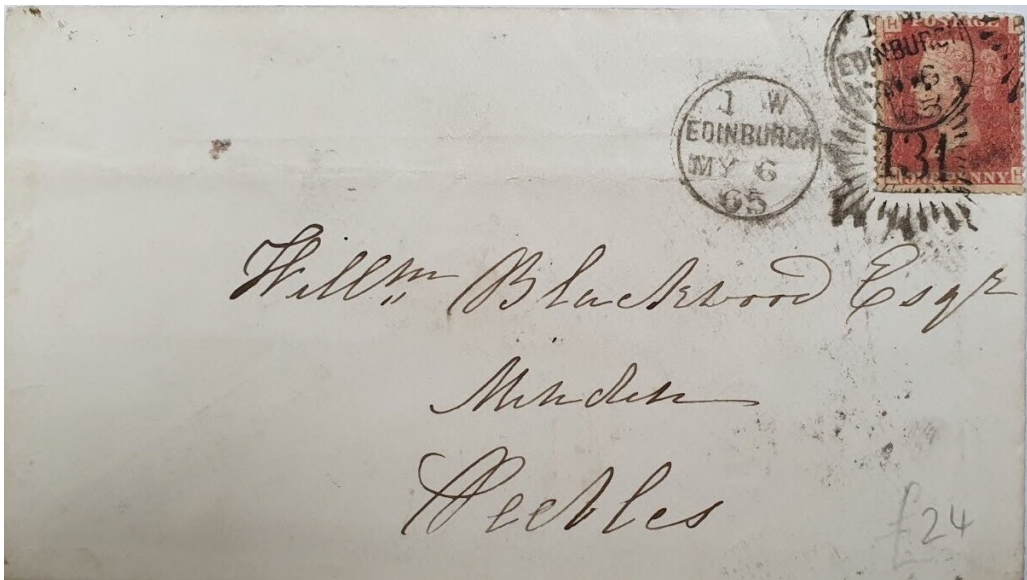 1 W
EDINBURGH
MY 6
65
EDINBURGH
6
65
131
POSTAGE
H
PENNY
H
Willm Blackwood Esqr
Minden
Peebles
£24